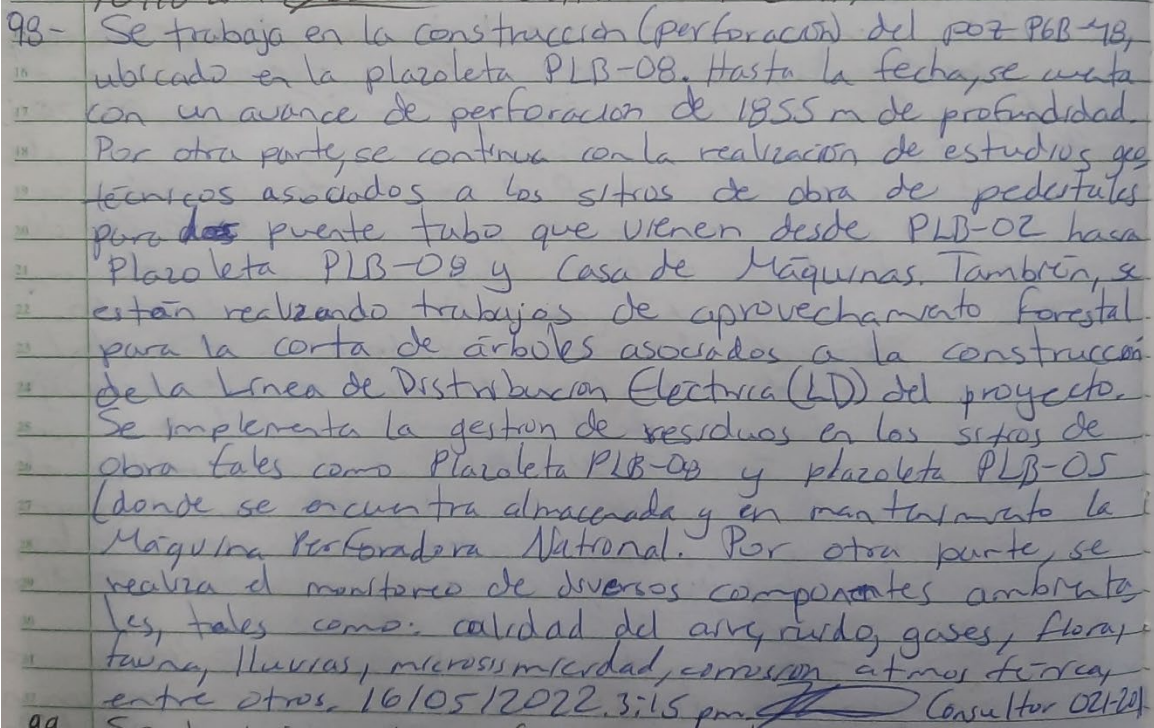 98- Se trabaja en la construcción (perforación) del poz PGB-48,
ubicado en la plazoleta PLB-08. Hasta la fecha, se cuenta
con un avance de perforación de 1855 m de profundidad.
Por otra parte, se continua con la realización de estudios geo
técnicos asociados a los sitios de obra de pedestales
para puente tubo que vienen desde PLB-02 hasa
Plazoleta PLB-08 y Casa de Máquinas. También, se
están realizando trabajos de aprovechamiento forestal
para la corta de árboles asociados a la construcción
de la Línea de Distribución Eléctrica (LD) del proyecto.
Se implementa la gestión de residuos en los sitios de
obra tales como Plazoleta PLB-08 y plazoleta PLB-05
(donde se encuentra almacenada y en mantenimiento la
Máquina Perforadora National. Por otra parte, se
realiza el monitoreo de diversos componentes ambienta
les, tales como: calidad del aire, ruido, gases, flora,
fauna, lluvias, microsismicidad, corrosión atmosférica,
entre otros. 16/05/2022. 3:15 pm. Consultor 021-201
99